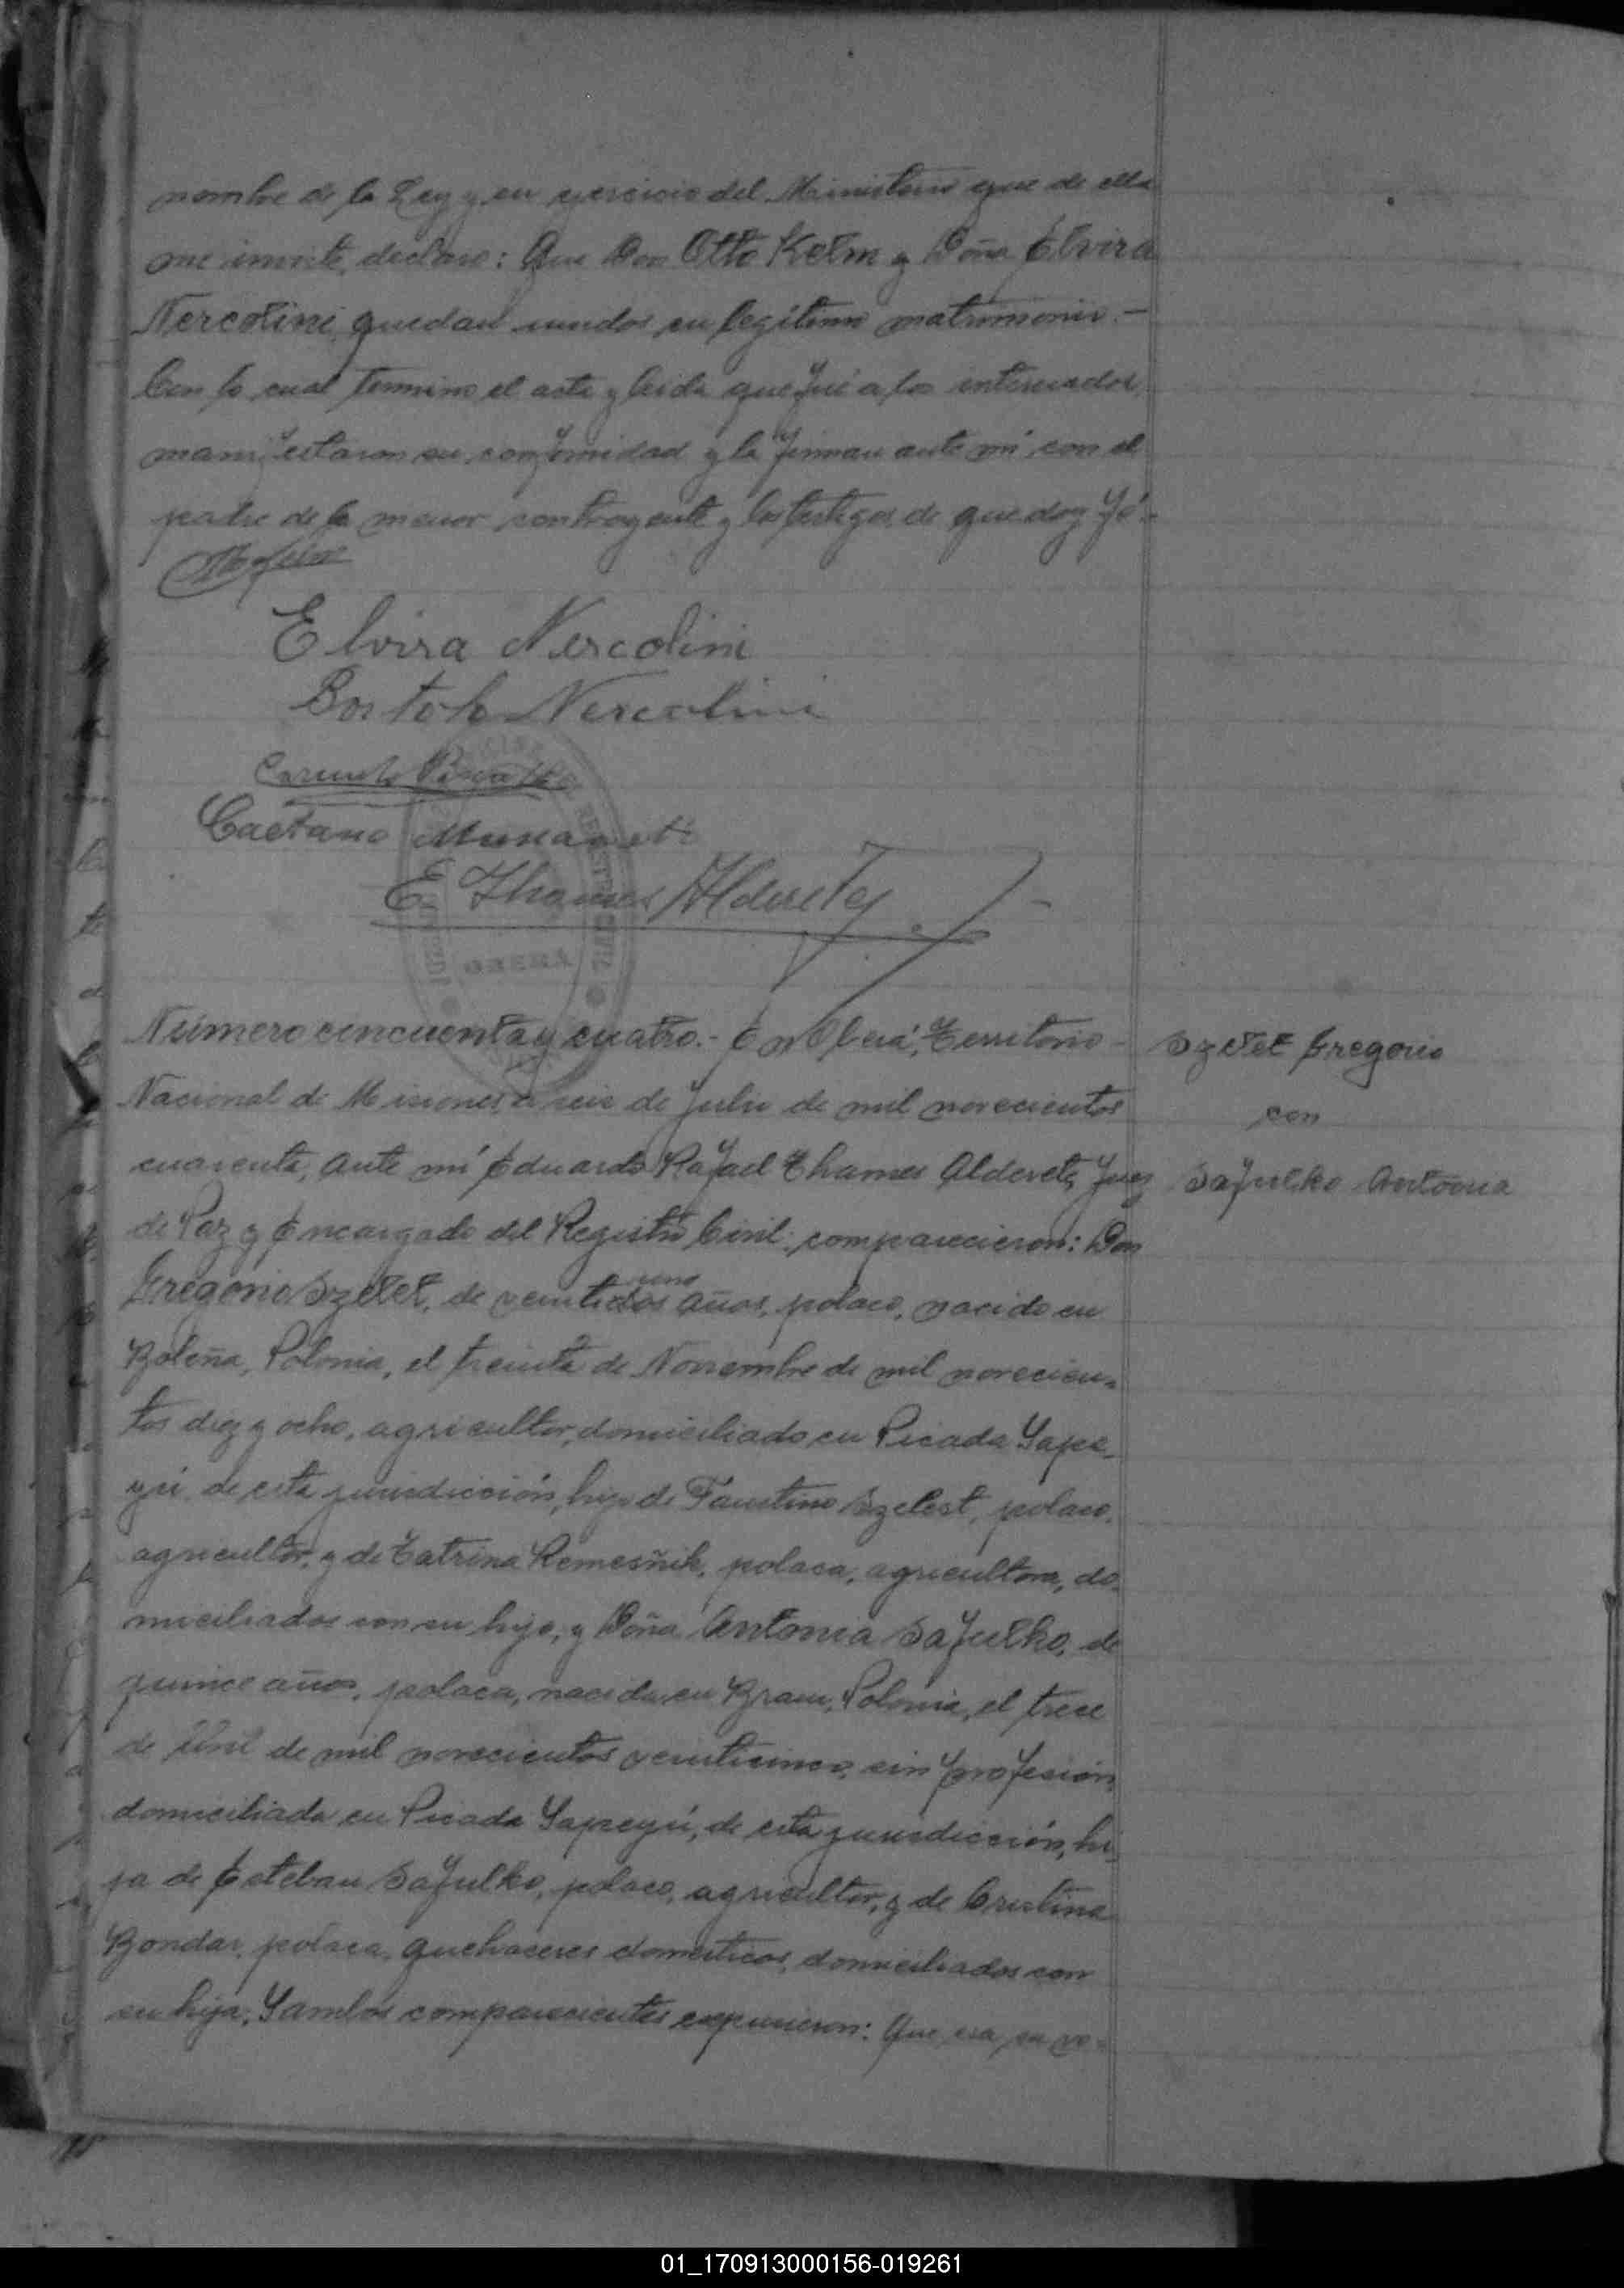 nombre de la Ley y en ejercicio del Ministerio que de ella
me inviste, declaro: Que Don Otto Kelm y Doña Elvira
Nercolini quedan unidos en legítimo matrimonio.-
Con lo cual termino el acta y leida que fué a los interesados,
manifestaron su conformidad y la firman ante mí con el
padre de la menor contrayente y los testigos, de que doy fé.-
Elvira Nercolini
Bortolo Nercolini
Caetano
E. Thames Alderete
REGISTRO CIVIL
OBERÁ
Número cincuenta y cuatro.- En Oberá, Territorio
Nacional de Misiones, a seis de Julio de mil novecientos
cuarenta, ante mí Eduardo Rafael Thames Alderete, Juez
de Paz y Encargado del Registro Civil, comparecieron: Don
Gregorio Szelet, de veintidos uno años, polaco, nacido en
Boleña, Polonia, el treinta de Noviembre de mil novecien-
tos diez y ocho, agricultor, domiciliado en Picada Yape-
yú, de esta jurisdicción, hijo de Faustino Szelest, polaco,
agricultor, y de Catrina Remesñik, polaca, agricultora, do-
miciliados con su hijo, y Doña Antonia Safulko, de
quince años, polaca, nacida en Bram, Polonia, el trece
de Abril de mil novecientos veinticinco, sin profesión,
domiciliada en Picada Yapeyú, de esta jurisdicción, hi-
ja de Esteban Safulko, polaco, agricultor, y de Cristina
Bondar, polaca, quehaceres domésticos, domiciliados con
su hija. Y ambos comparecientes expusieron: Que era su vo-
Szelet Gregorio
con
Safulko Antonia
01_170913000156-019261